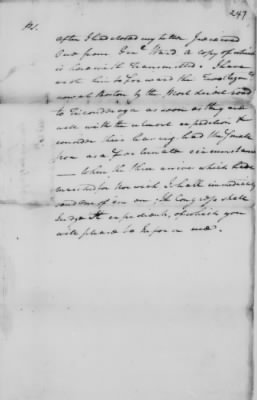 247
PS.
after I had closed my letter I received
one from Genl Ward a copy of which
is herewith Transmitted. I have
wrote him to forward the Two Regim.ts
now at Boston by the Most direct road
to Ticonderoga as soon as they are
well with the utmost expedition &
consider their having had the Small
pox as a fortunate circumstance
— when the three arrive which have
marched for Norwich I shall immediately
send one of em on, If Congress shall
Judge It expedient, of which you
will please to Inform me.